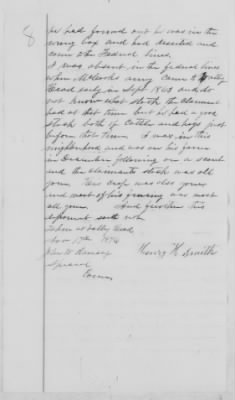 8
he had found out he was in the
wrong box and had deserted and
come the Federal lines.
I was absent in the federal lines
when McCooks army came to Valley
Head early in Sept 1863 and do
not know what stock the claimant
had at that time but he had a good
stock both of Cattle and hogs just
before that time. I was in this
neighborhood and was on his farm
in December following on a scout
and the claimants stock was all
gone. His crop was also gone
and most of his fencing was most
all gone. And further this
deponent saith not.
Taken at Valley Head
Nov 17th 1874
Henry H Smith
John W. Ramsey
Special
Comr